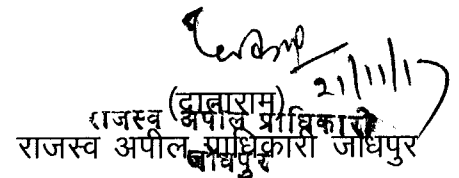 21/11/17
(दाताराम)
राजस्व अपील प्राधिकारी
राजस्व अपील प्राधिकारी जोधपुर
जोधपुर